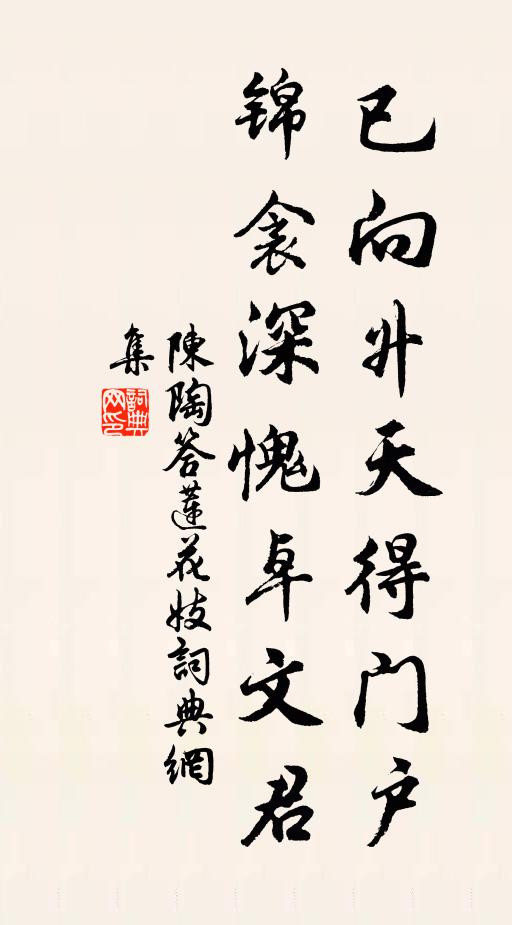 已向升天得门户
锦衾深愧卓文君
陳陶答蓮花妓詞典網
集
詞典
网印